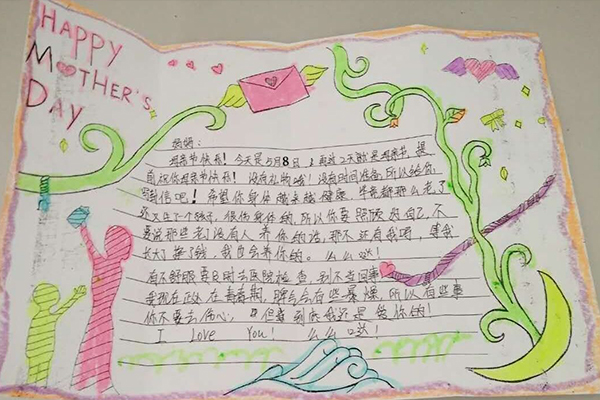 HAPPY
MOTHER'S
DAY
妈妈:
母亲节快乐! 今天是5月8日,再过2天就是母亲节,提
前祝你母亲节快乐! 没有礼物哦! 没有时间准备,所以给你
写封信吧! 希望你身体越来越健康,年纪都那么老了
还又生了个孩子,很伤身体的,所以你要照顾好自己,不
要说那些老了没有人养你的话,那不还有我呀,等我
长大了挣了钱,我也会养你的。么么哒!
有不舒服要及时去医院检查,别不当回事
我现在正处在青春期,脾气会有些暴躁,所以有些事
你不要太伤心,但要到底我还是爱你的!
I Love You! 么么哒!